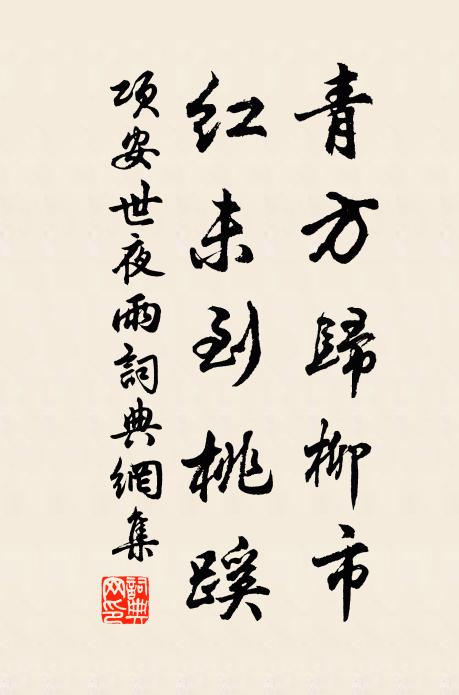 青方歸柳市
紅未到桃蹊
項安世夜雨詞典網集
詞典
网印